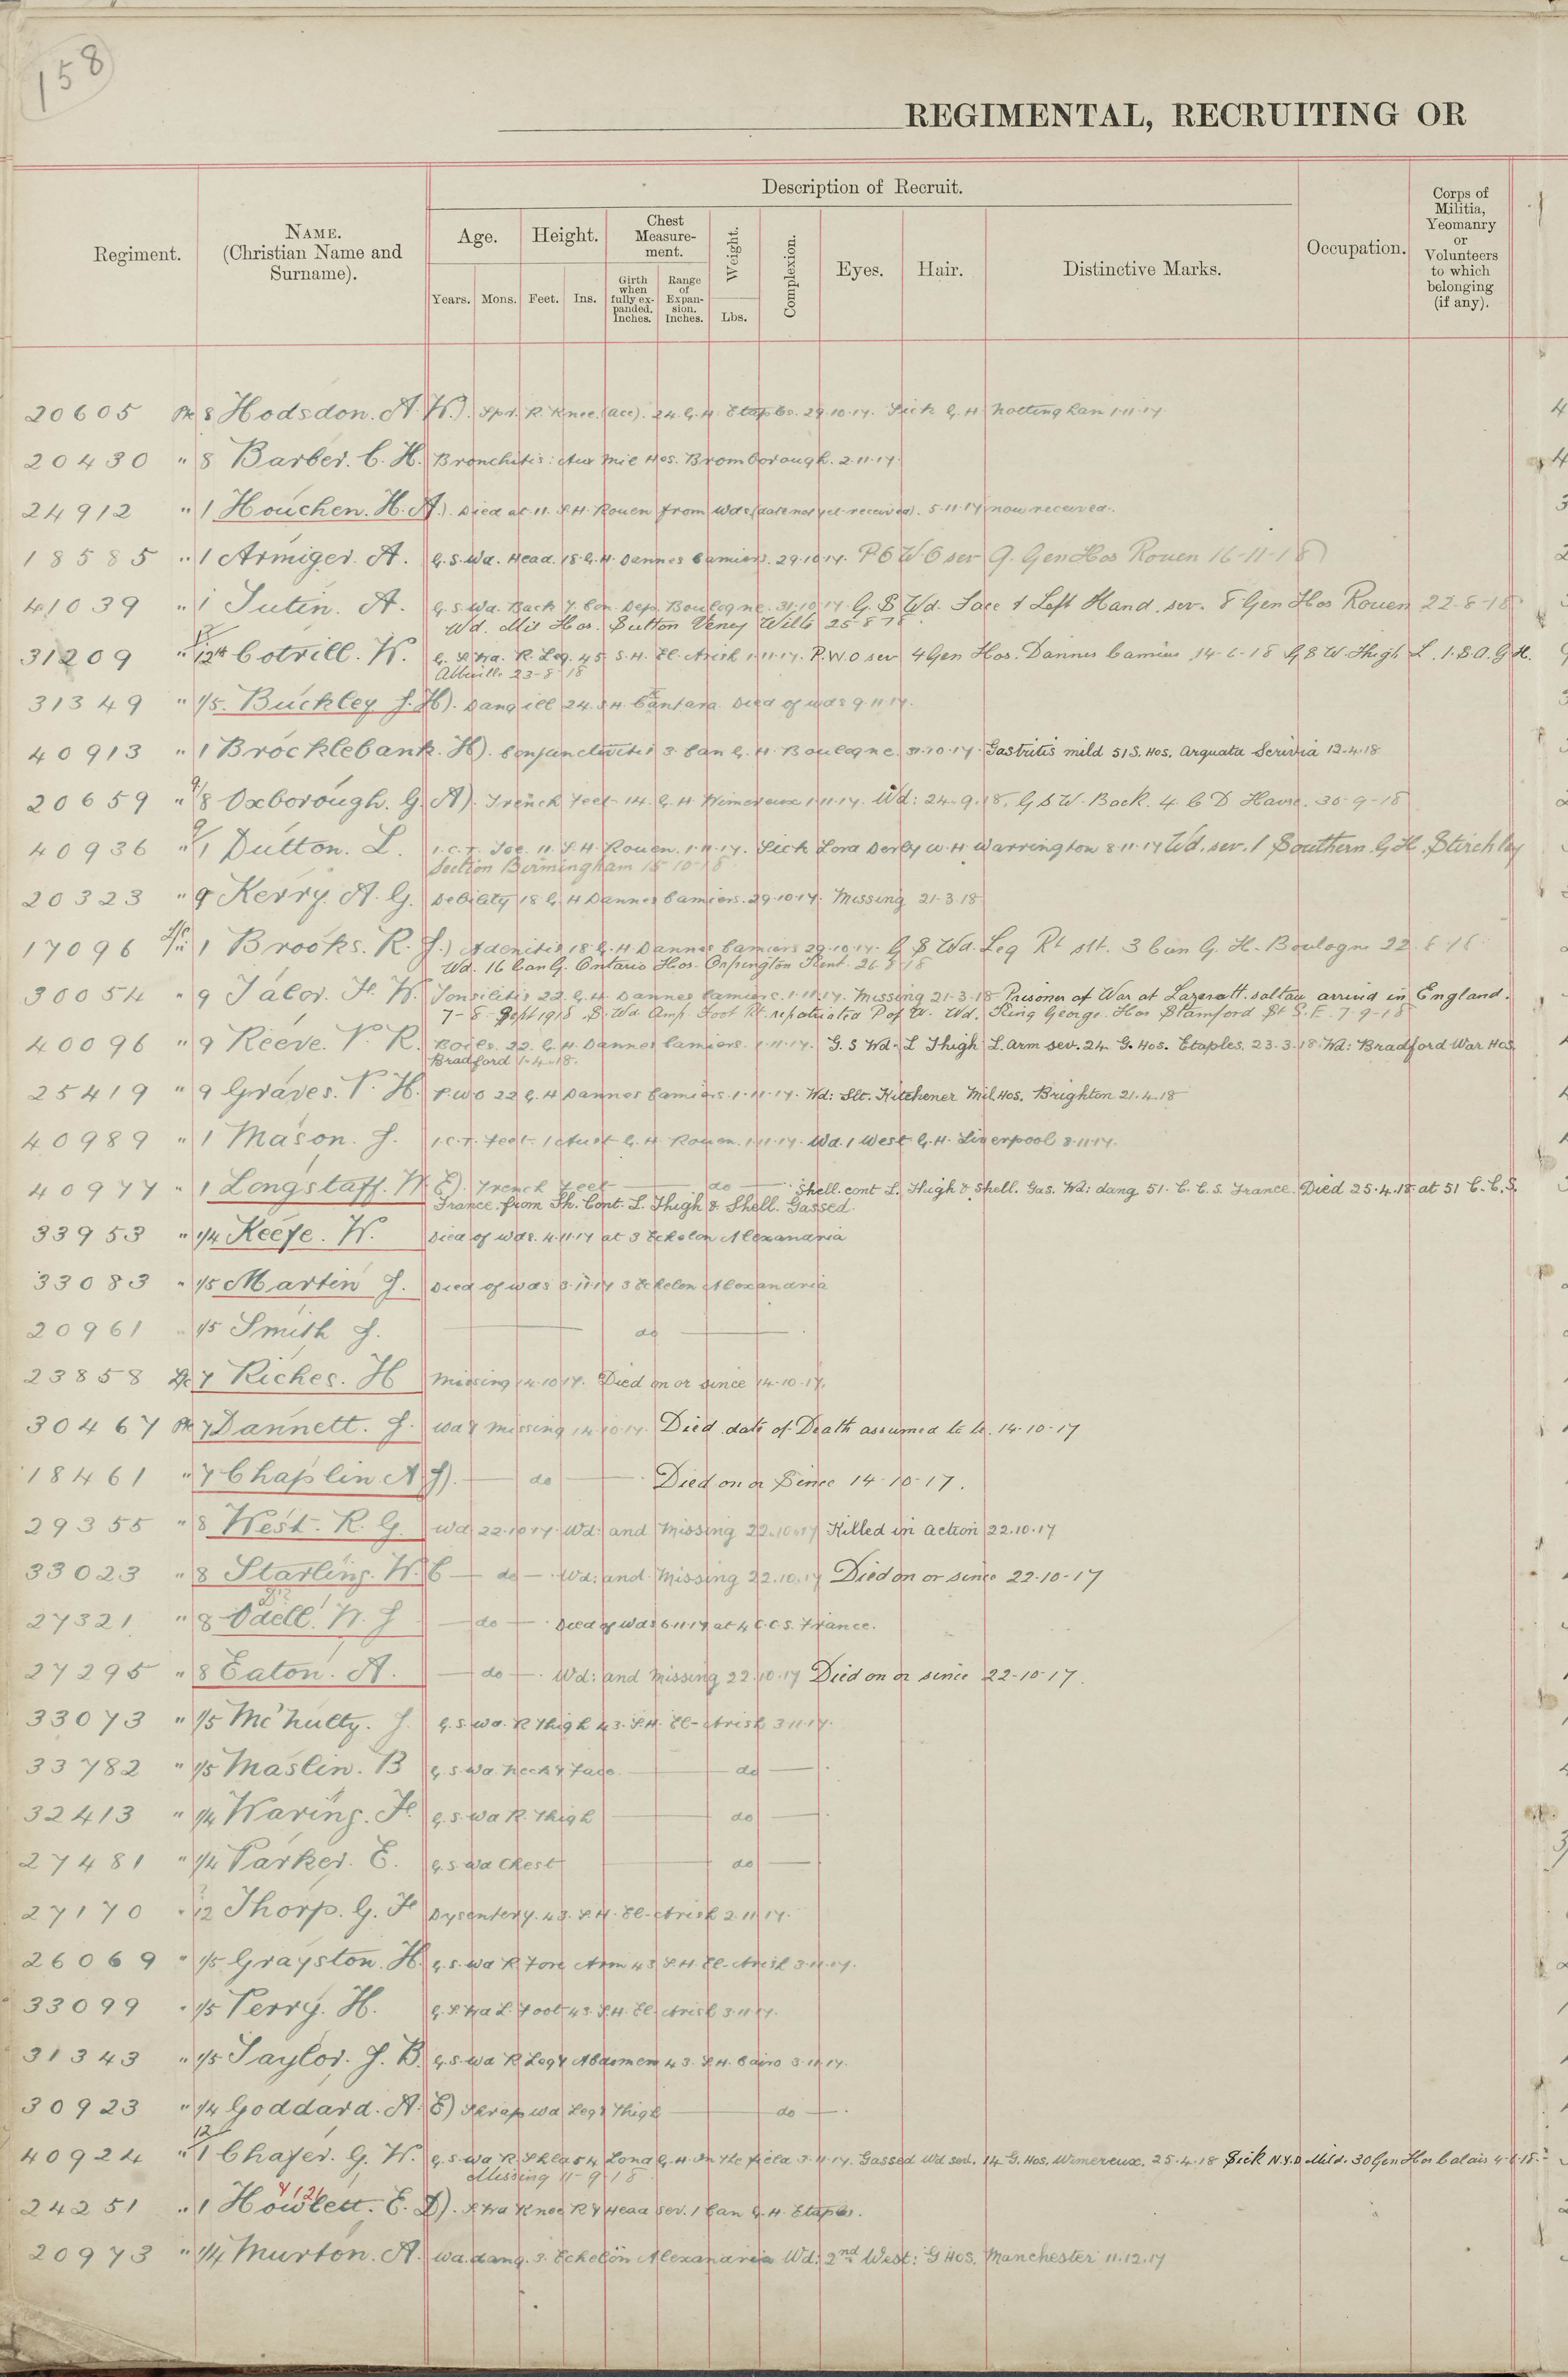 158
REGIMENTAL, RECRUITING OR
Regiment.
NAME.
(Christian Name and
Surname).
Description of Recruit.
Age.
Height.
Chest
Measure-
ment.
Weight.
Complexion.
Eyes.
Hair.
Distinctive Marks.
Occupation.
Corps of
Militia,
Yeomanry
or
Volunteers
to which
belonging
(if any).
Years.
Mons.
Feet.
Ins.
Girth
when
fully ex-
panded.
Inches.
Range
of
Expan-
sion.
Inches.
Lbs.
20605 Pte 8 Hodsdon. A. W.). Spr. R. Knee. (acc). 24. G. H. Etaples. 29.10.17. Sick G. H Nottingham 1.11.17
20430 " 8 Barber. C. H. Bronchitis: Aux Mil Hos. Bromborough. 2.11.17.
24912 " 1 Houchen. H. A.). Died at 11. S. H. Rouen from Wds (date not yet received). 5.11.17 now received.
18585 " 1 Armiger. A. G. S. Wd. Head. 18 G. H. Dannes Camiers. 29.10.17. P6 W O sev 9. Gen Hos Rouen 16-11-18
41039 " 1 Tutin. A. G. S. Wd. Back 7. Con. Dep. Boulogne. 31.10.17. G. S Wd. Face & Left Hand. sev. 8 Gen Hos Rouen 22-8-18
Wd. Mil Hos. Sutton Veney Wilts 25-8-18
31209 " 12th Cotrill. W. G. S. Wd. R. Leg. 45 S. H. El. Arish 1.11.17. P.W.O sev 4 Gen Hos. Dannes Camiers 14-6-18 G S W. Thigh L. 1. S. A. G H.
Abbeville 23-8-18
31349 " 1/5. Buckley J. H). Dang ill 24. S H. Cantara Died of wds 9.11.17.
40913 " 1 Brocklebank. H). Conjunctivitis 3. Can G. H. Boulogne. 31.10.17. Gastritis mild 51 S. Hos. Arquata Scrivia 12.4.18
20659 " 9/8 Oxborough. G. A). Trench Feet 14. G. H Wimereux 1.11.17. Wd: 24.9.18. G S W. Back. 4. C D Havre. 30-9-18
40936 " 9/1 Dutton. L. I.C.T. Toe. 11. S. H. Rouen. 1.11.17. Sick Lord Derby W. H. Warrington 8.11.17 Wd. sev. 1 Southern. G H. Stirchley
Section Birmingham 15-10-18
20323 " 9 Kerry. A. G. Debility 18 G. H Dannes Camiers. 29.10.17. Missing 21-3-18
17096 1 Brooks. R. J.) Adenitis 18 G. H Dannes Camiers 29.10.17. G S Wd. Leg Rt slt. 3 Can G. H. Boulogne 22.8.18.
Wd. 16 Can G. Ontario Hos. Orpington Kent. 26.8.18
30054 " 9 Tabor. F. W. Tonsilitis 22. G. H. Dannes Camiers. 1.11.17. Missing 21-3-18 Prisoner of War at Lazarett. soltau arrived in England.
7-8 Sept 1918. S. Wd Amp. Foot Rt. repatriated P of W. Wd. King George. Hos Stamford St S. E. 7-9-18
40096 " 9 Reeve. P. R. Boils. 22. G. H. Dannes Camiers. 1.11.17. G. S Wd- L Thigh L. Arm sev. 24. G. Hos. Etaples. 23.3.18. Wd: Bradford War Hos.
Bradford 1.4.18.
25419 " 9 Graves. P. H. P.U.O 22 G. H Dannes Camiers. 1.11.17. Wd: Slt. Kitchener Mil Hos. Brighton 21.4.18
40989 " 1 Mason. J. I.C.T. Feet. 1 Aust G. H. Rouen. 1.11.17. Wd. 1 West G. H. Liverpool 8.11.17.
40977 " 1 Longstaff. W. E). Trench Feet — do — Shell. cont L. Thigh & Shell. Gas. Wd: dang 51. C. C. S. France. Died 25.4.18 at 51 C.C.S.
France. from Sh. Cont. L. Thigh & Shell. Gassed.
33953 " 1/4 Keefe. W. Died of wds. 4.11.17 at 3 Echelon Alexandria
33083 " 1/5 Martin J. Died of wds 3.11.17 3 Echelon Alexandria
20961 1/5 Smith J. — do —
23858 7 Riches. H Missing 14.10.17. Died on or since 14.10.17.
30467 Pte 7 Dannett. J. Wd & Missing 14.10.17. Died date of Death assumed to be. 14-10-17
18461 " 7 Chaplin A J). — do — Died on or Since 14-10-17.
29355 " 8 West. R. G. Wd 22.10.17. Wd: and Missing 22.10.17 Killed in Action 22.10.17
33023 " 8 Starling. W. C — do — Wd: and Missing 22.10.17 Died on or since 22-10-17
27321 " 8 Odell. W. J — do — Died of Wds 6.11.17 at 4 C.C.S. France.
27295 " 8 Eaton. A. — do — Wd: and Missing 22.10.17 Died on or since 22-10-17.
33073 " 1/5 McNulty. J. G. S. Wd. R Thigh 43. S.H. El-Arish 3.11.17.
33782 " 1/5 Maslin. B G. S. Wd. Neck & Face. — do —
32413 " 1/4 Waring. F. G. S. Wd R. Thigh — do —
27481 " 1/4 Parker. E. G. S. Wd Chest — do —
27170 " 12 Thorp. G. F Dysentery. 43. S. H. El-Arish 2.11.17.
26069 " 1/5 Grayston. H. G. S. Wd R Fore Arm 43 S.H. El-Arish 3.11.17.
33099 " 1/5 Perry. H. G. S. Wd L. Foot 43. S.H. El-Arish 3.11.17.
31343 " 1/5 Taylor. J. B. G. S. Wd R Leg & Abdomen 43. S. H. Cairo 3.11.17.
30923 " 1/4 Goddard. A. E) Shrap wd Leg & Thigh — do —
40924 " 12/1 Chafer. G. W. G. S. Wd R. 54 Lond G. H In the field 3.11.17. Gassed Wd sev. 14. G. Hos. Wimereux. 25.4.18 Sick N.Y.D Mild. 30 Gen Hos Calais 4-6-18.
Missing 11-9-18
4126
24251 " 1 Howlett. E. D). S. Wd Knee R & Head sev. 1 Can G. H. Etaples.
20973 " 1/4 Murton. A. Wd. dang. 3. Echelon Alexandria Wd: 2nd West: G Hos. Manchester 11.12.17